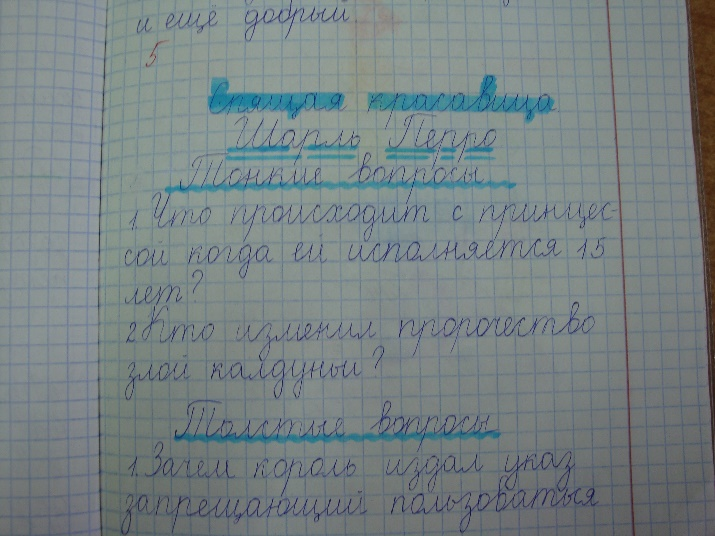 и ещё добрый
5
Спящая красавица
Шарль Перро
Тонкие вопросы
1. Что происходит с принцес-
сой когда ей исполняется 15
лет?
2. Кто изменил пророчество
злой калдуньи?
Толстые вопросы
1. Зачем король издал указ
запрещающий пользоваться